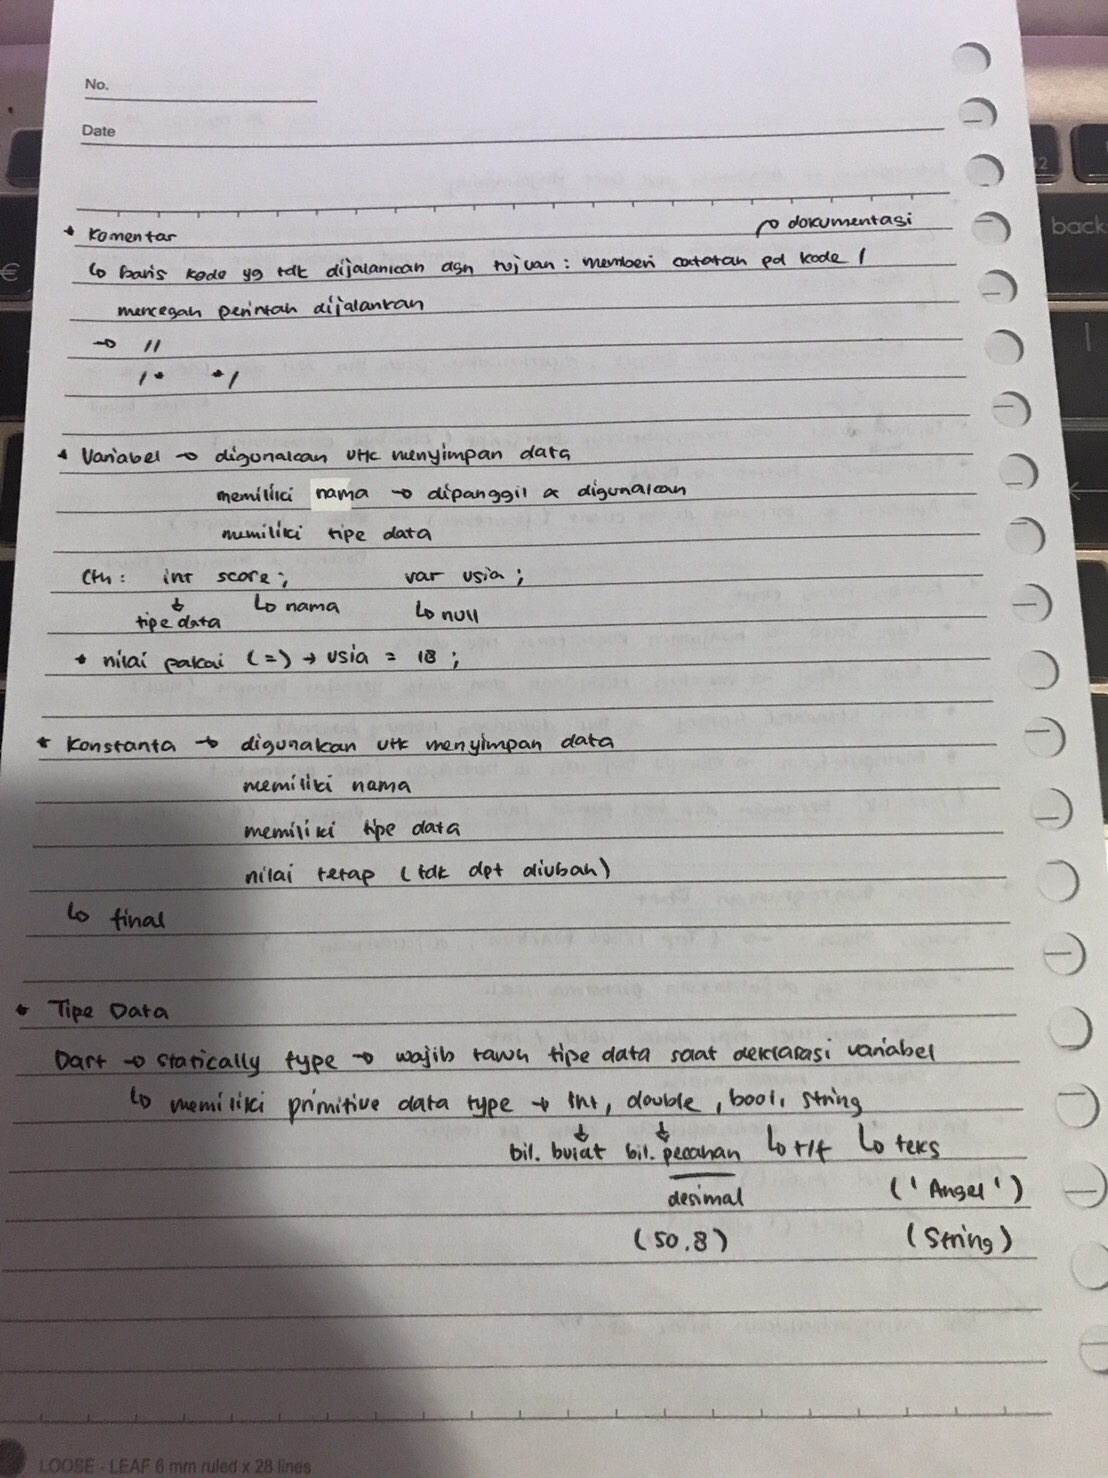 No.
Date
* Komentar ↗ dokumentasi
↳ baris kode yg tdk dijalankan dgn tujuan : memberi catatan pd kode /
mencegah perintah dijalankan
→ //
/* */
* Variabel → digunakan utk menyimpan data
memiliki nama → dipanggil & digunakan
memiliki tipe data
Cth : int score ; var usia ;
↓ tipe data ↳ nama ↳ null
* nilai pakai (=) → usia = 18 ;
* Konstanta → digunakan utk menyimpan data
memiliki nama
memiliki tipe data
nilai tetap (tdk dpt diubah)
↳ final
* Tipe Data
Dart → statically type → wajib tawu tipe data saat deklarasi variabel
↳ memiliki primitive data type → int, double, bool, string
↓ bil. bulat ↓ bil. pecahan ↳ t/f ↳ teks
desimal ('Angel')
(50.8) (String)
LOOSE - LEAF 6 mm ruled x 28 lines